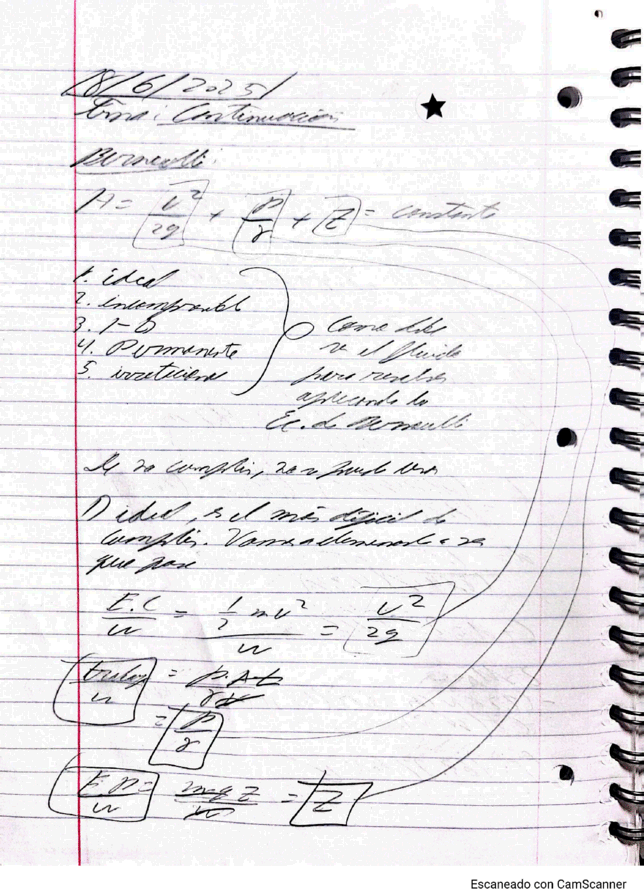 18/6/2025
tema: Continuación
Bernoulli:
H = v²/2g + p/γ + z = constante
1. ideal
2. incompresible
3. 1-D
4. Permanente
5. irrotacional
Como debe
el fluido
para resolver
aplicando la
Ec. de Bernoulli
no cumplir, no puede
1) ideal, es el más dificil de
cumplir. Vamos a eliminarla a ver
que pasa
E.C/w = ½mv²/w = v²/2g
trabaj/w = p.A.L/γ∀
= p/γ
E.P/w = mgz/w = z
Escaneado con CamScanner